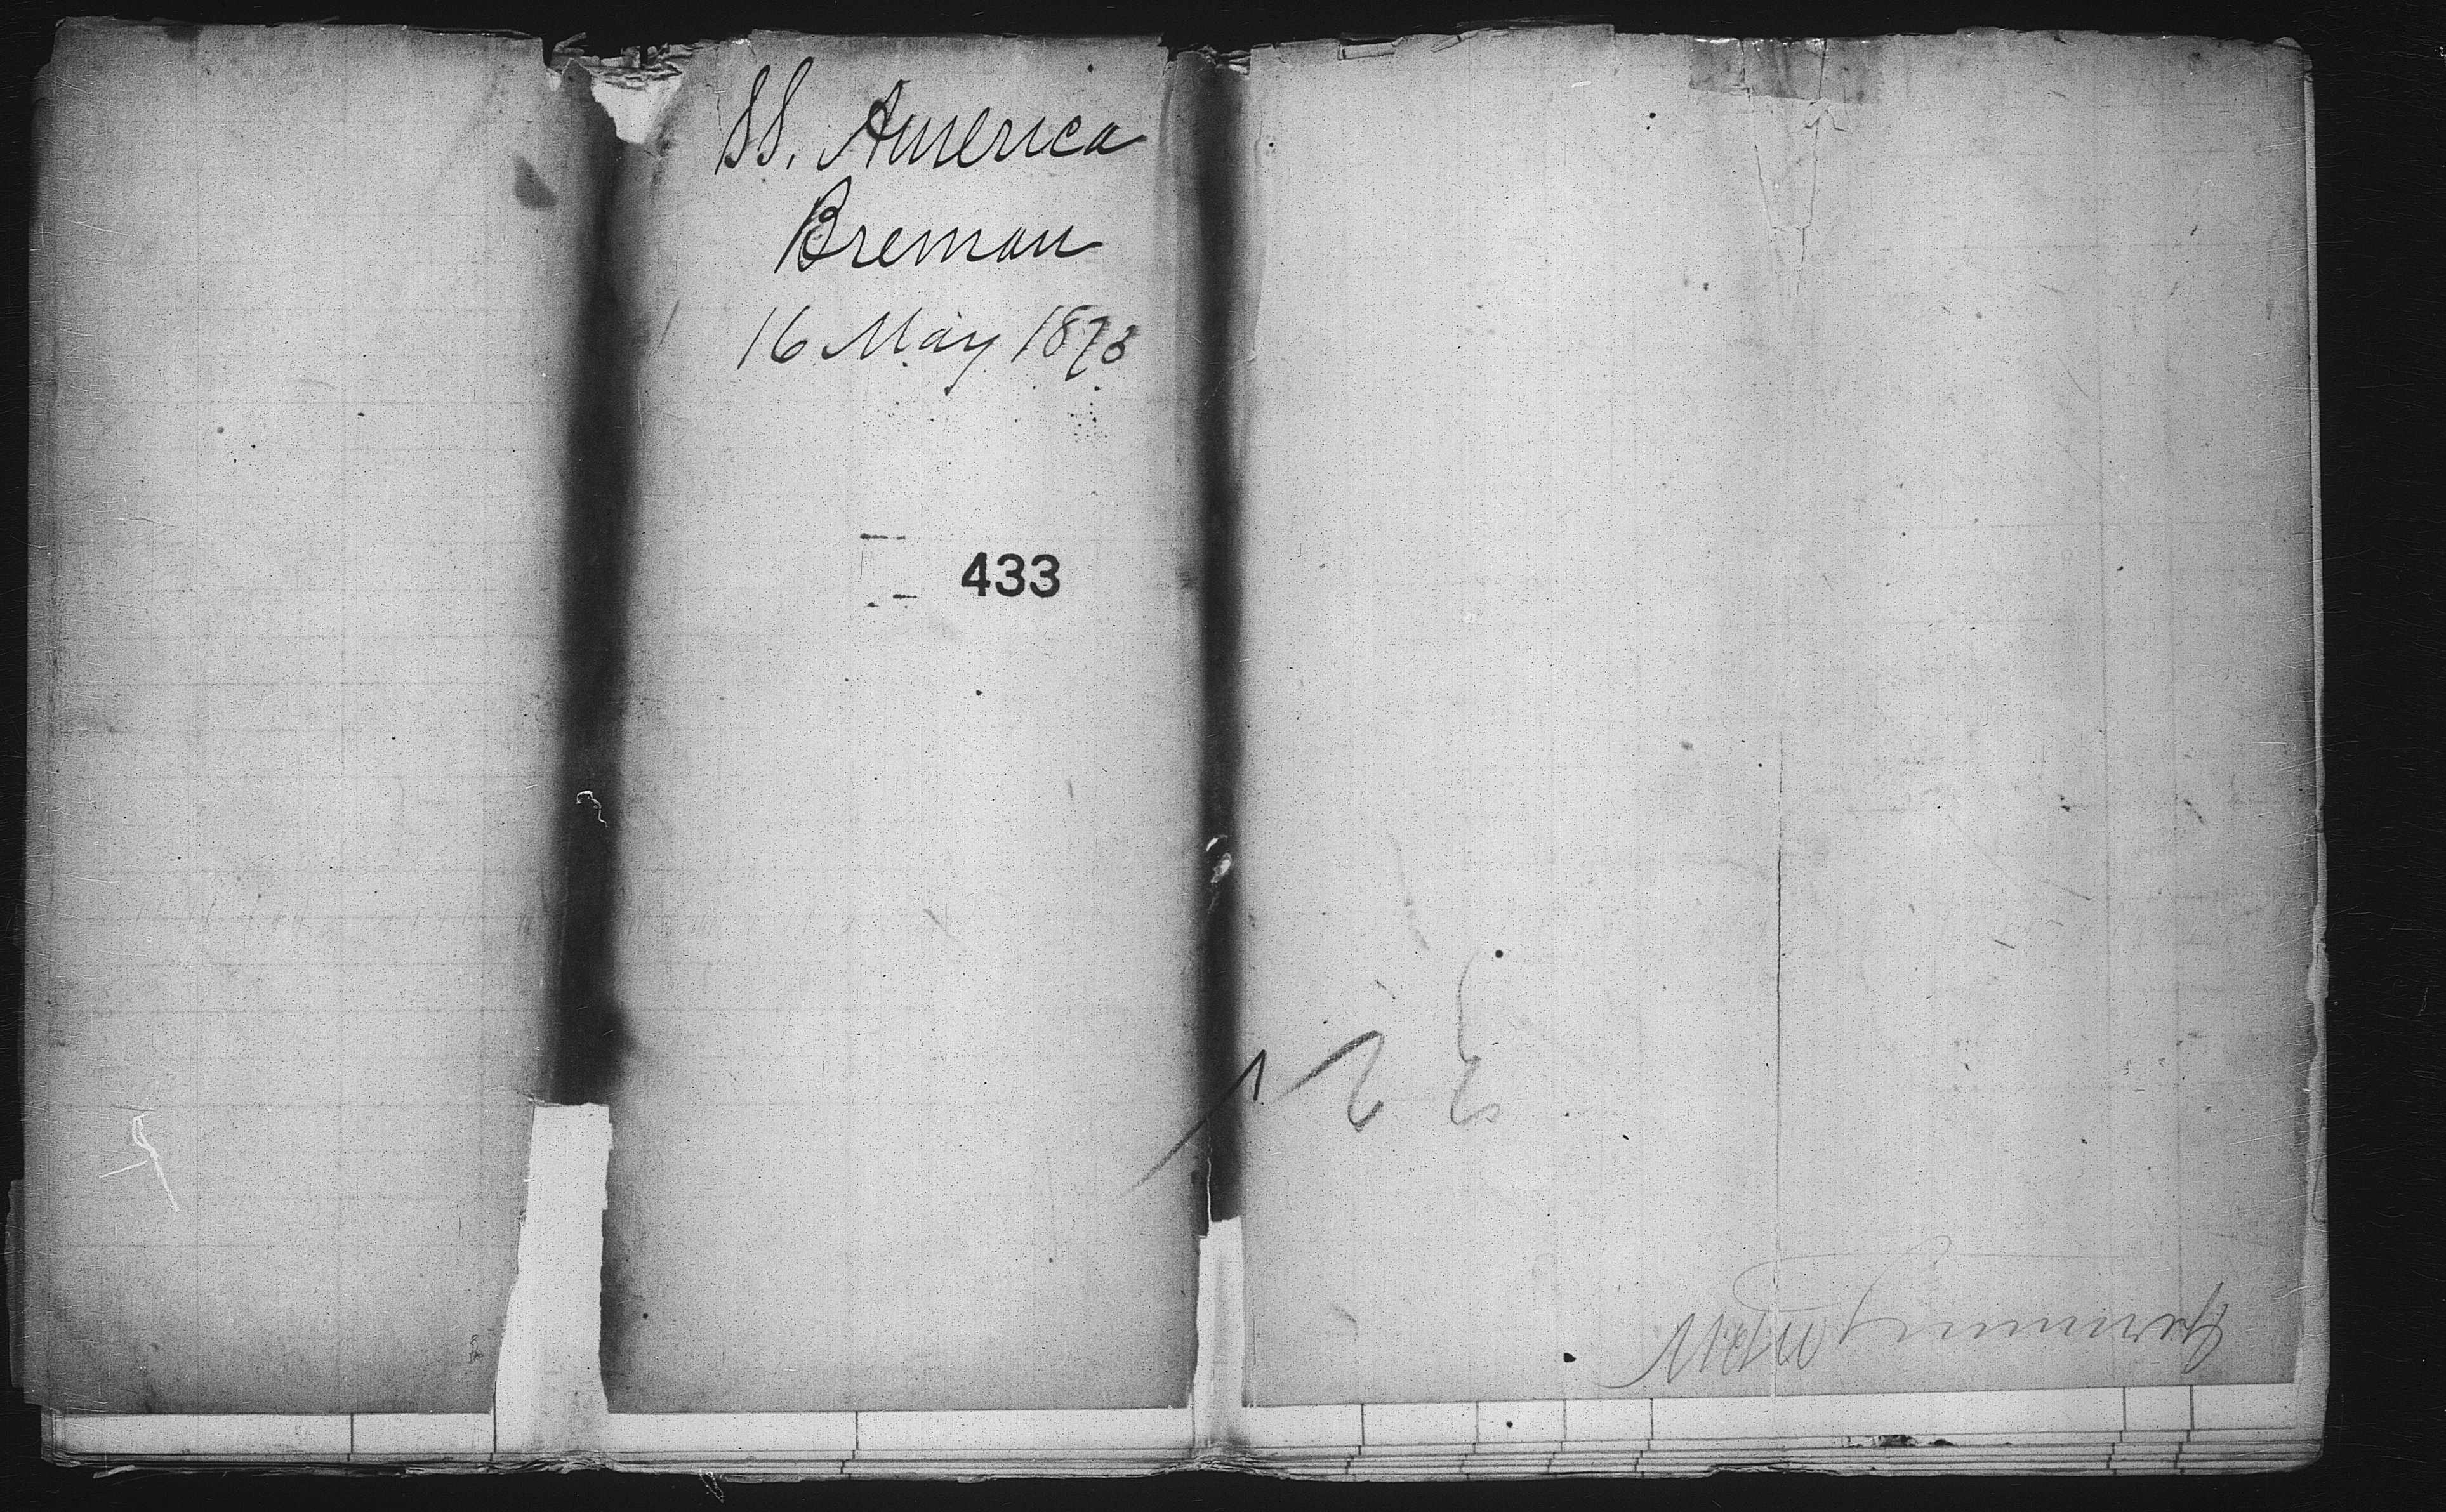 SS. America
Breman
16 May 1873
433